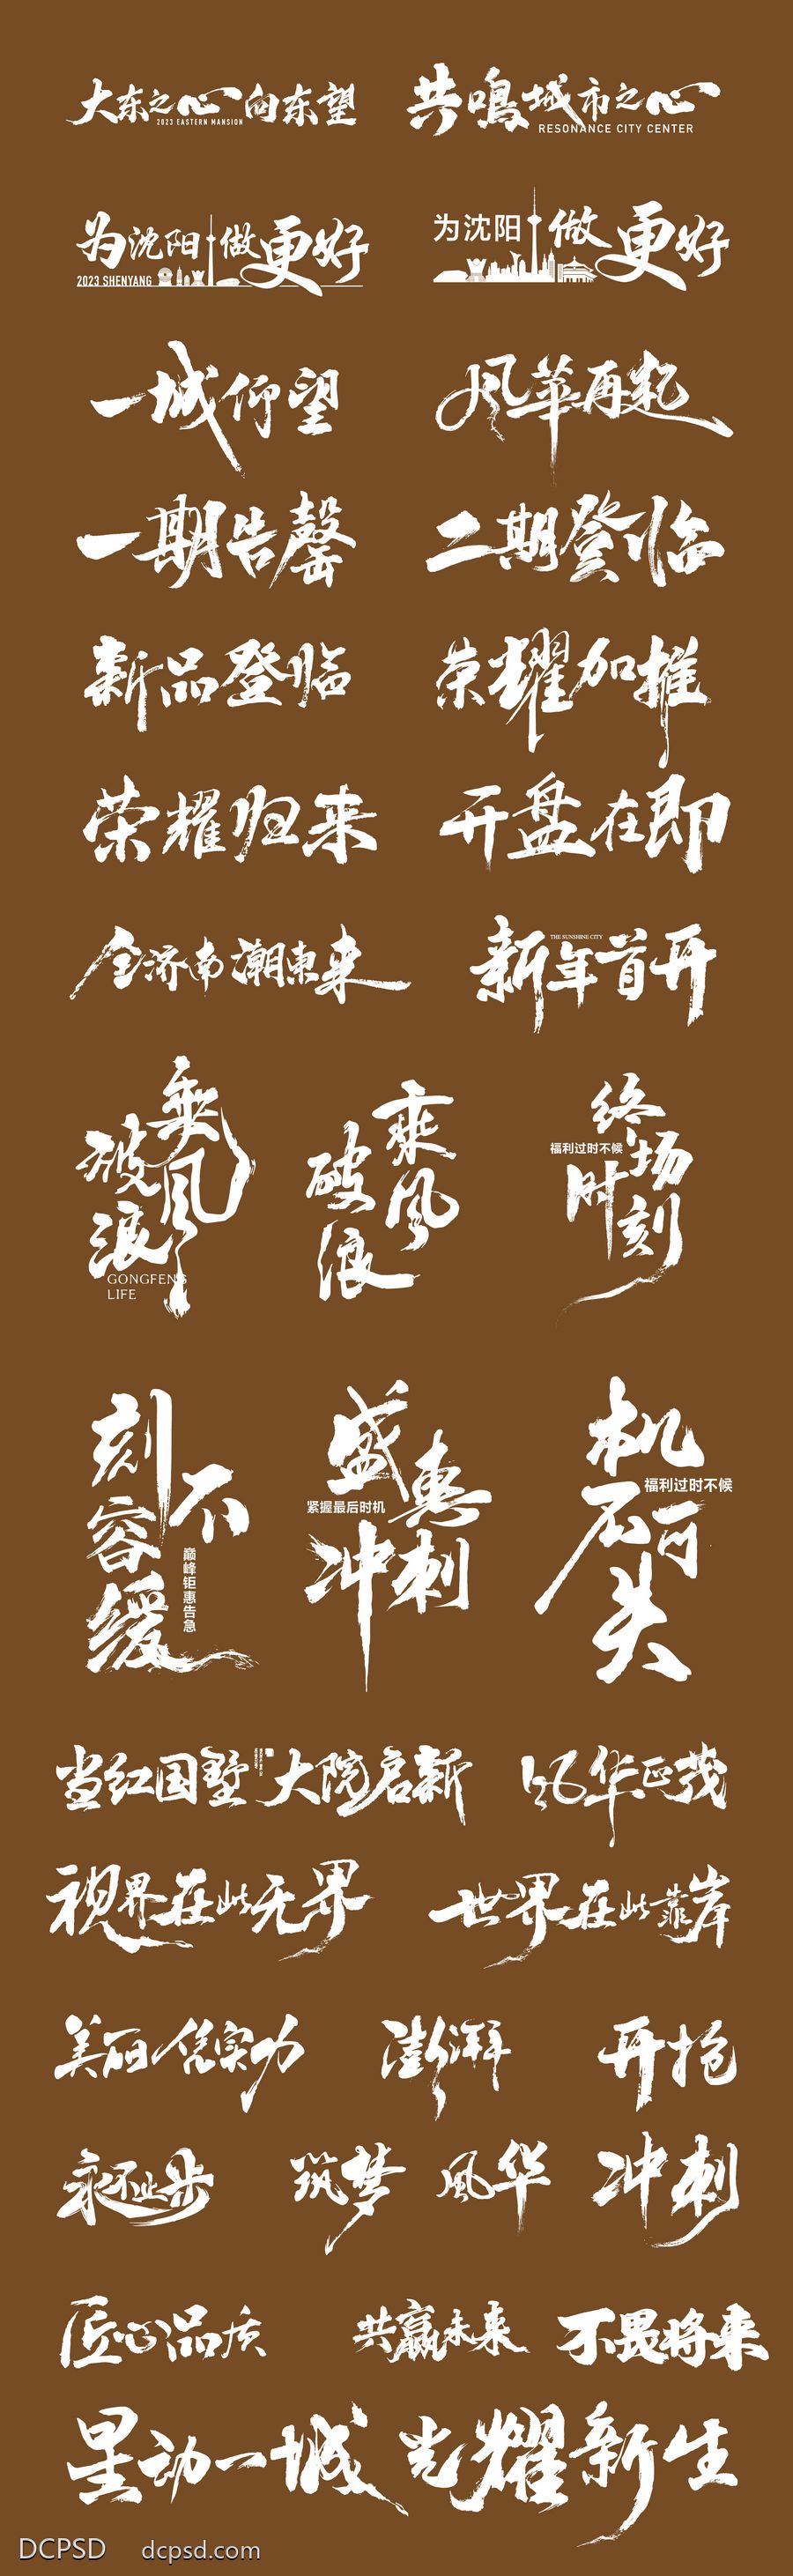 大东之心向东望
2023 EASTERN MANSION
共鸣城市之心
RESONANCE CITY CENTER
为沈阳做更好
2023 SHENYANG
为沈阳做更好
一城仰望
风华再起
一期告罄
二期登临
新品登临
荣耀加推
荣耀归来
开盘在即
全济南潮東来
新年首开
THE SUNSHINE CITY
乘风破浪
GONGFENG
LIFE
乘风破浪
终场时刻
福利过时不候
刻不容缓
巅峰钜惠告急
盛惠冲刺
紧握最后时机
机不可失
福利过时不候
当红国墅
大院启新
风华正茂
视界在此无界
世界在此靠岸
美丽凭实力
澎湃
开抢
永不止步
筑梦
風华
冲刺
匠心品质
共赢未来
不畏将来
星动一城
光耀新生
DCPSD dcpsd.com